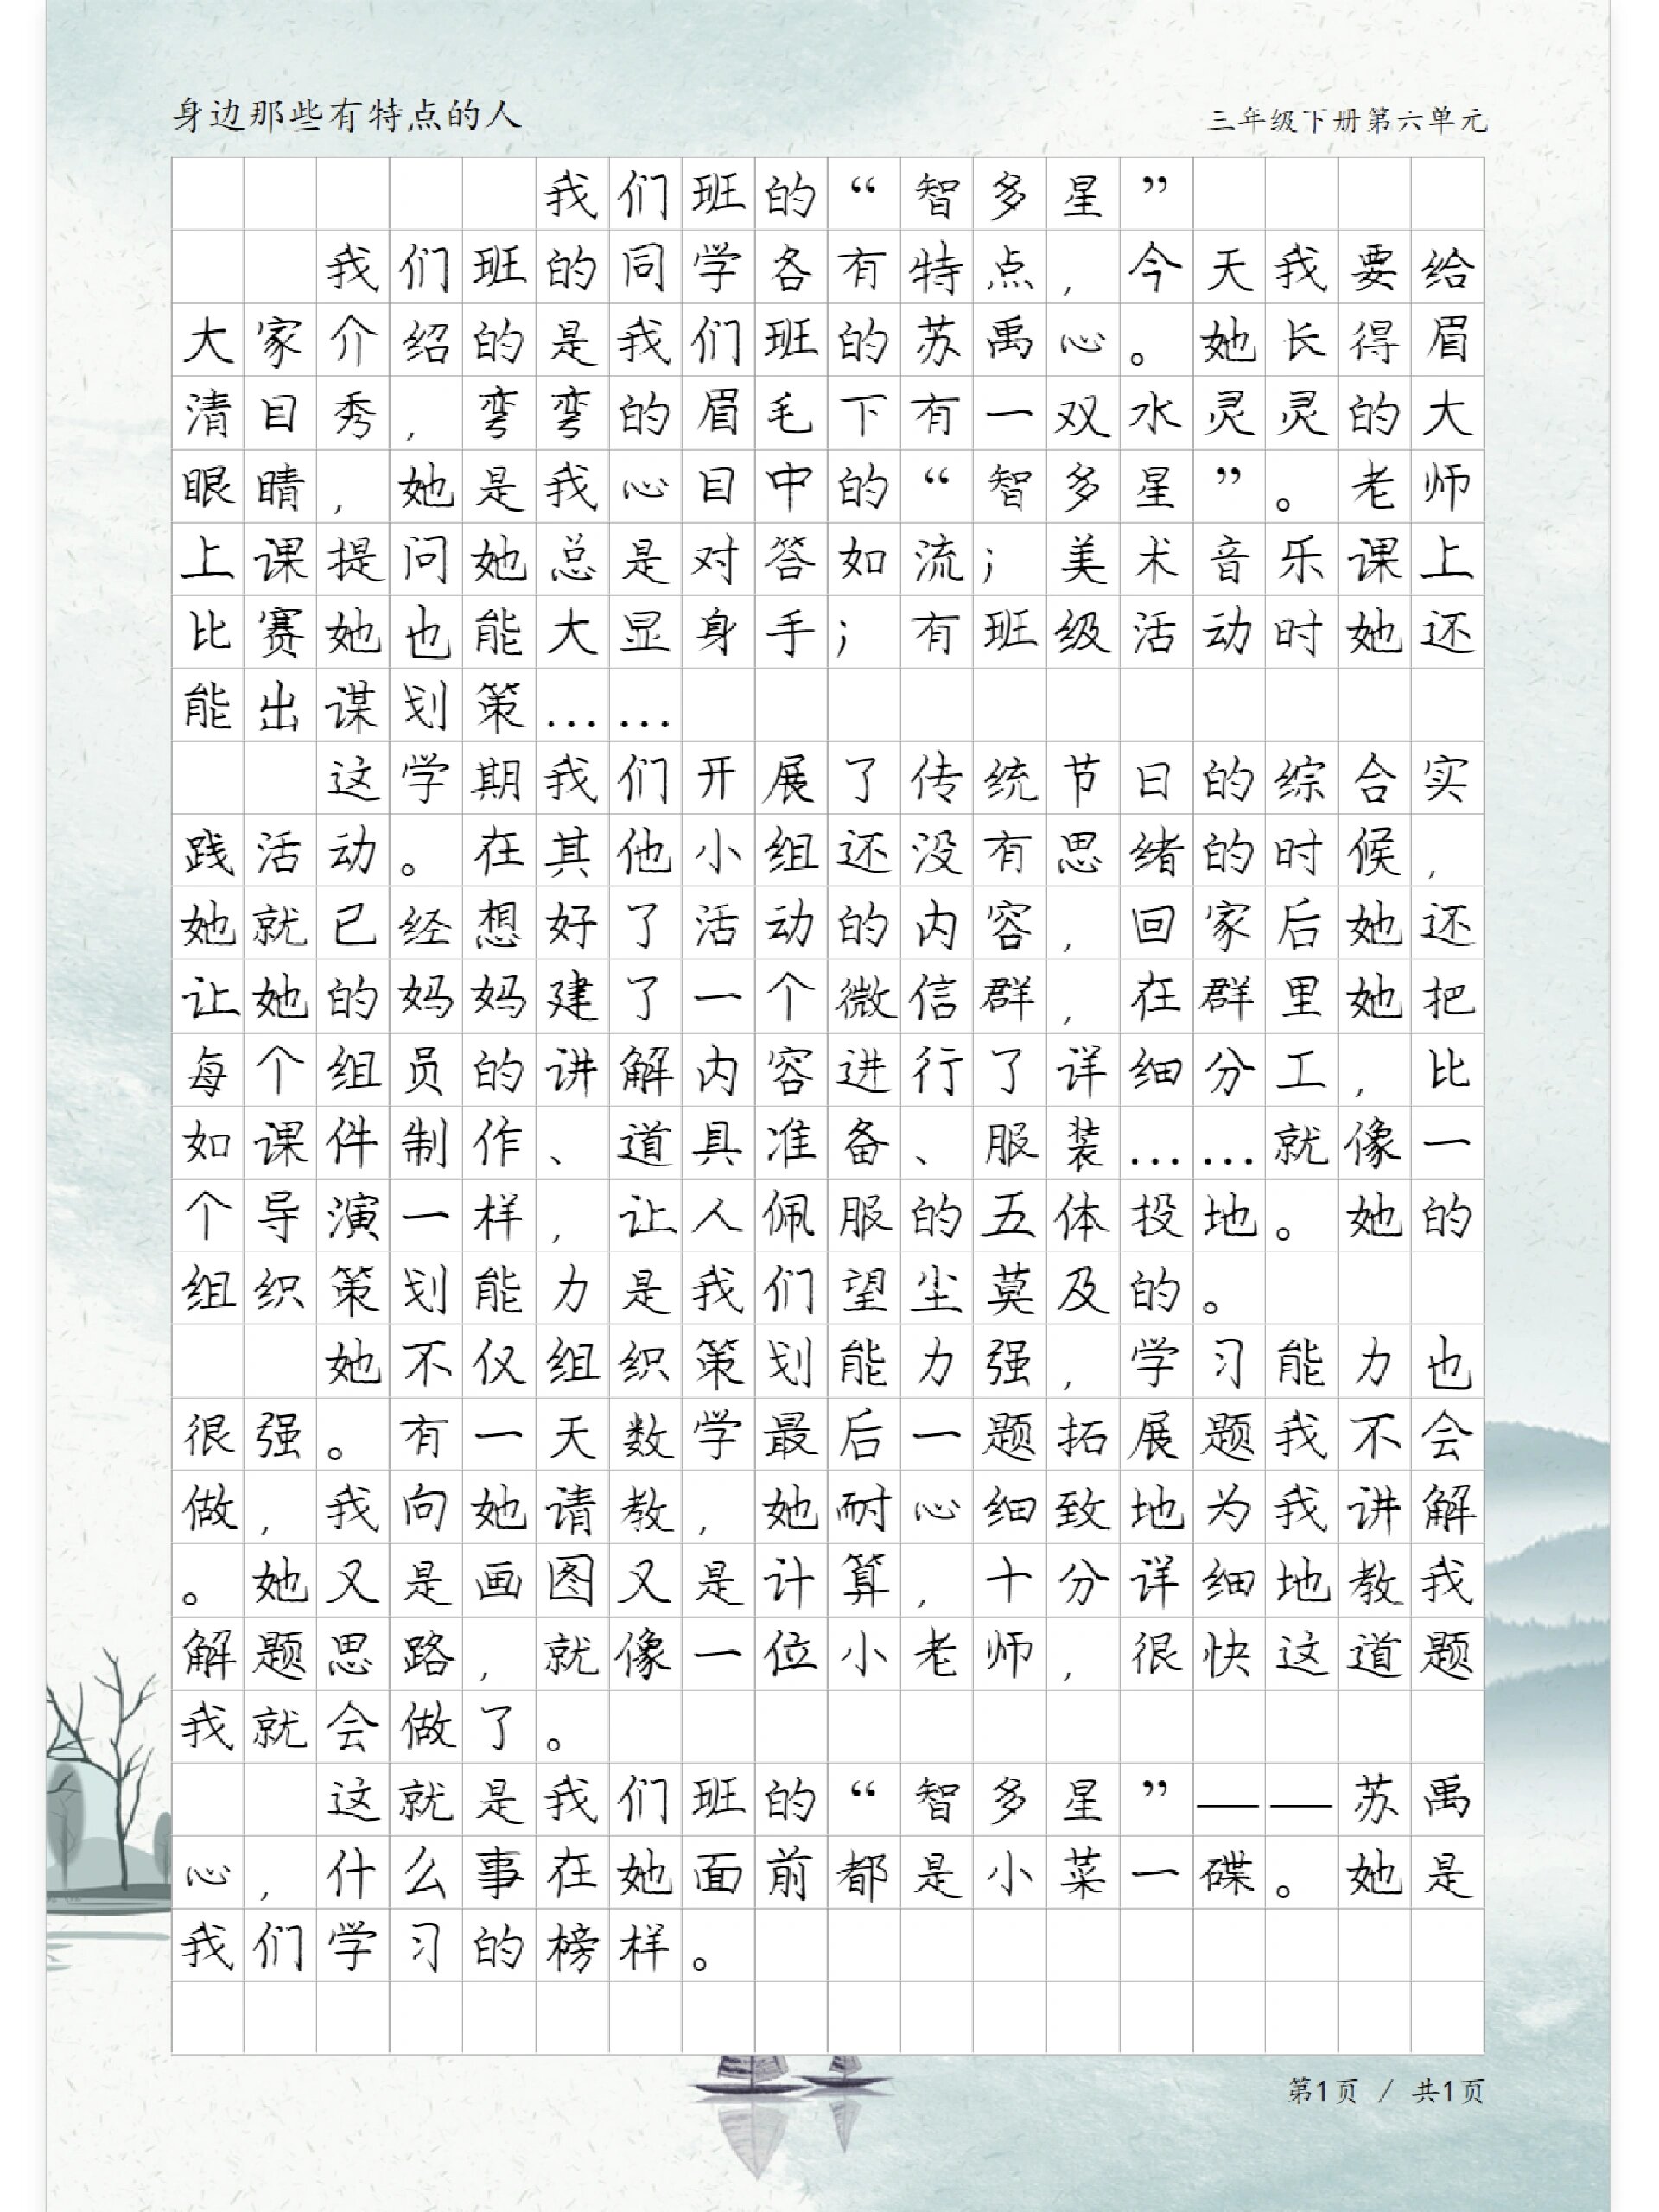 身边那些有特点的人
三年级下册第六单元
我们班的“智多星”
我们班的同学各有特点,今天我要给
大家介绍的是我们班的苏禹心。她长得眉
清目秀,弯弯的眉毛下有一双水灵灵的大
眼睛,她是我心目中的“智多星”。老师
上课提问她总是对答如流;美术音乐课上
比赛她也能大显身手;有班级活动时她还
能出谋划策……
这学期我们开展了传统节日的综合实
践活动。在其他小组还没有思绪的时候,
她就已经想好了活动的内容,回家后她还
让她的妈妈建了一个微信群,在群里她把
每个组员的讲解内容进行了详细分工,比
如课件制作、道具准备、服装……就像一
个导演一样,让人佩服的五体投地。她的
组织策划能力是我们望尘莫及的。
她不仅组织策划能力强,学习能力也
很强。有一天数学最后一题拓展题我不会
做,我向她请教,她耐心细致地为我讲解
。她又是画图又是计算,十分详细地教我
解题思路,就像一位小老师,很快这道题
我就会做了。
这就是我们班的“智多星”——苏禹
心,什么事在她面前都是小菜一碟。她是
我们学习的榜样。
第1页 / 共1页